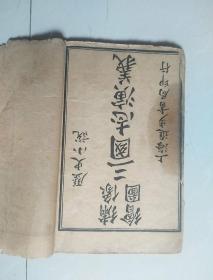 歷史小說
繡像
繪圖
三國志演義
上海進步書局印行